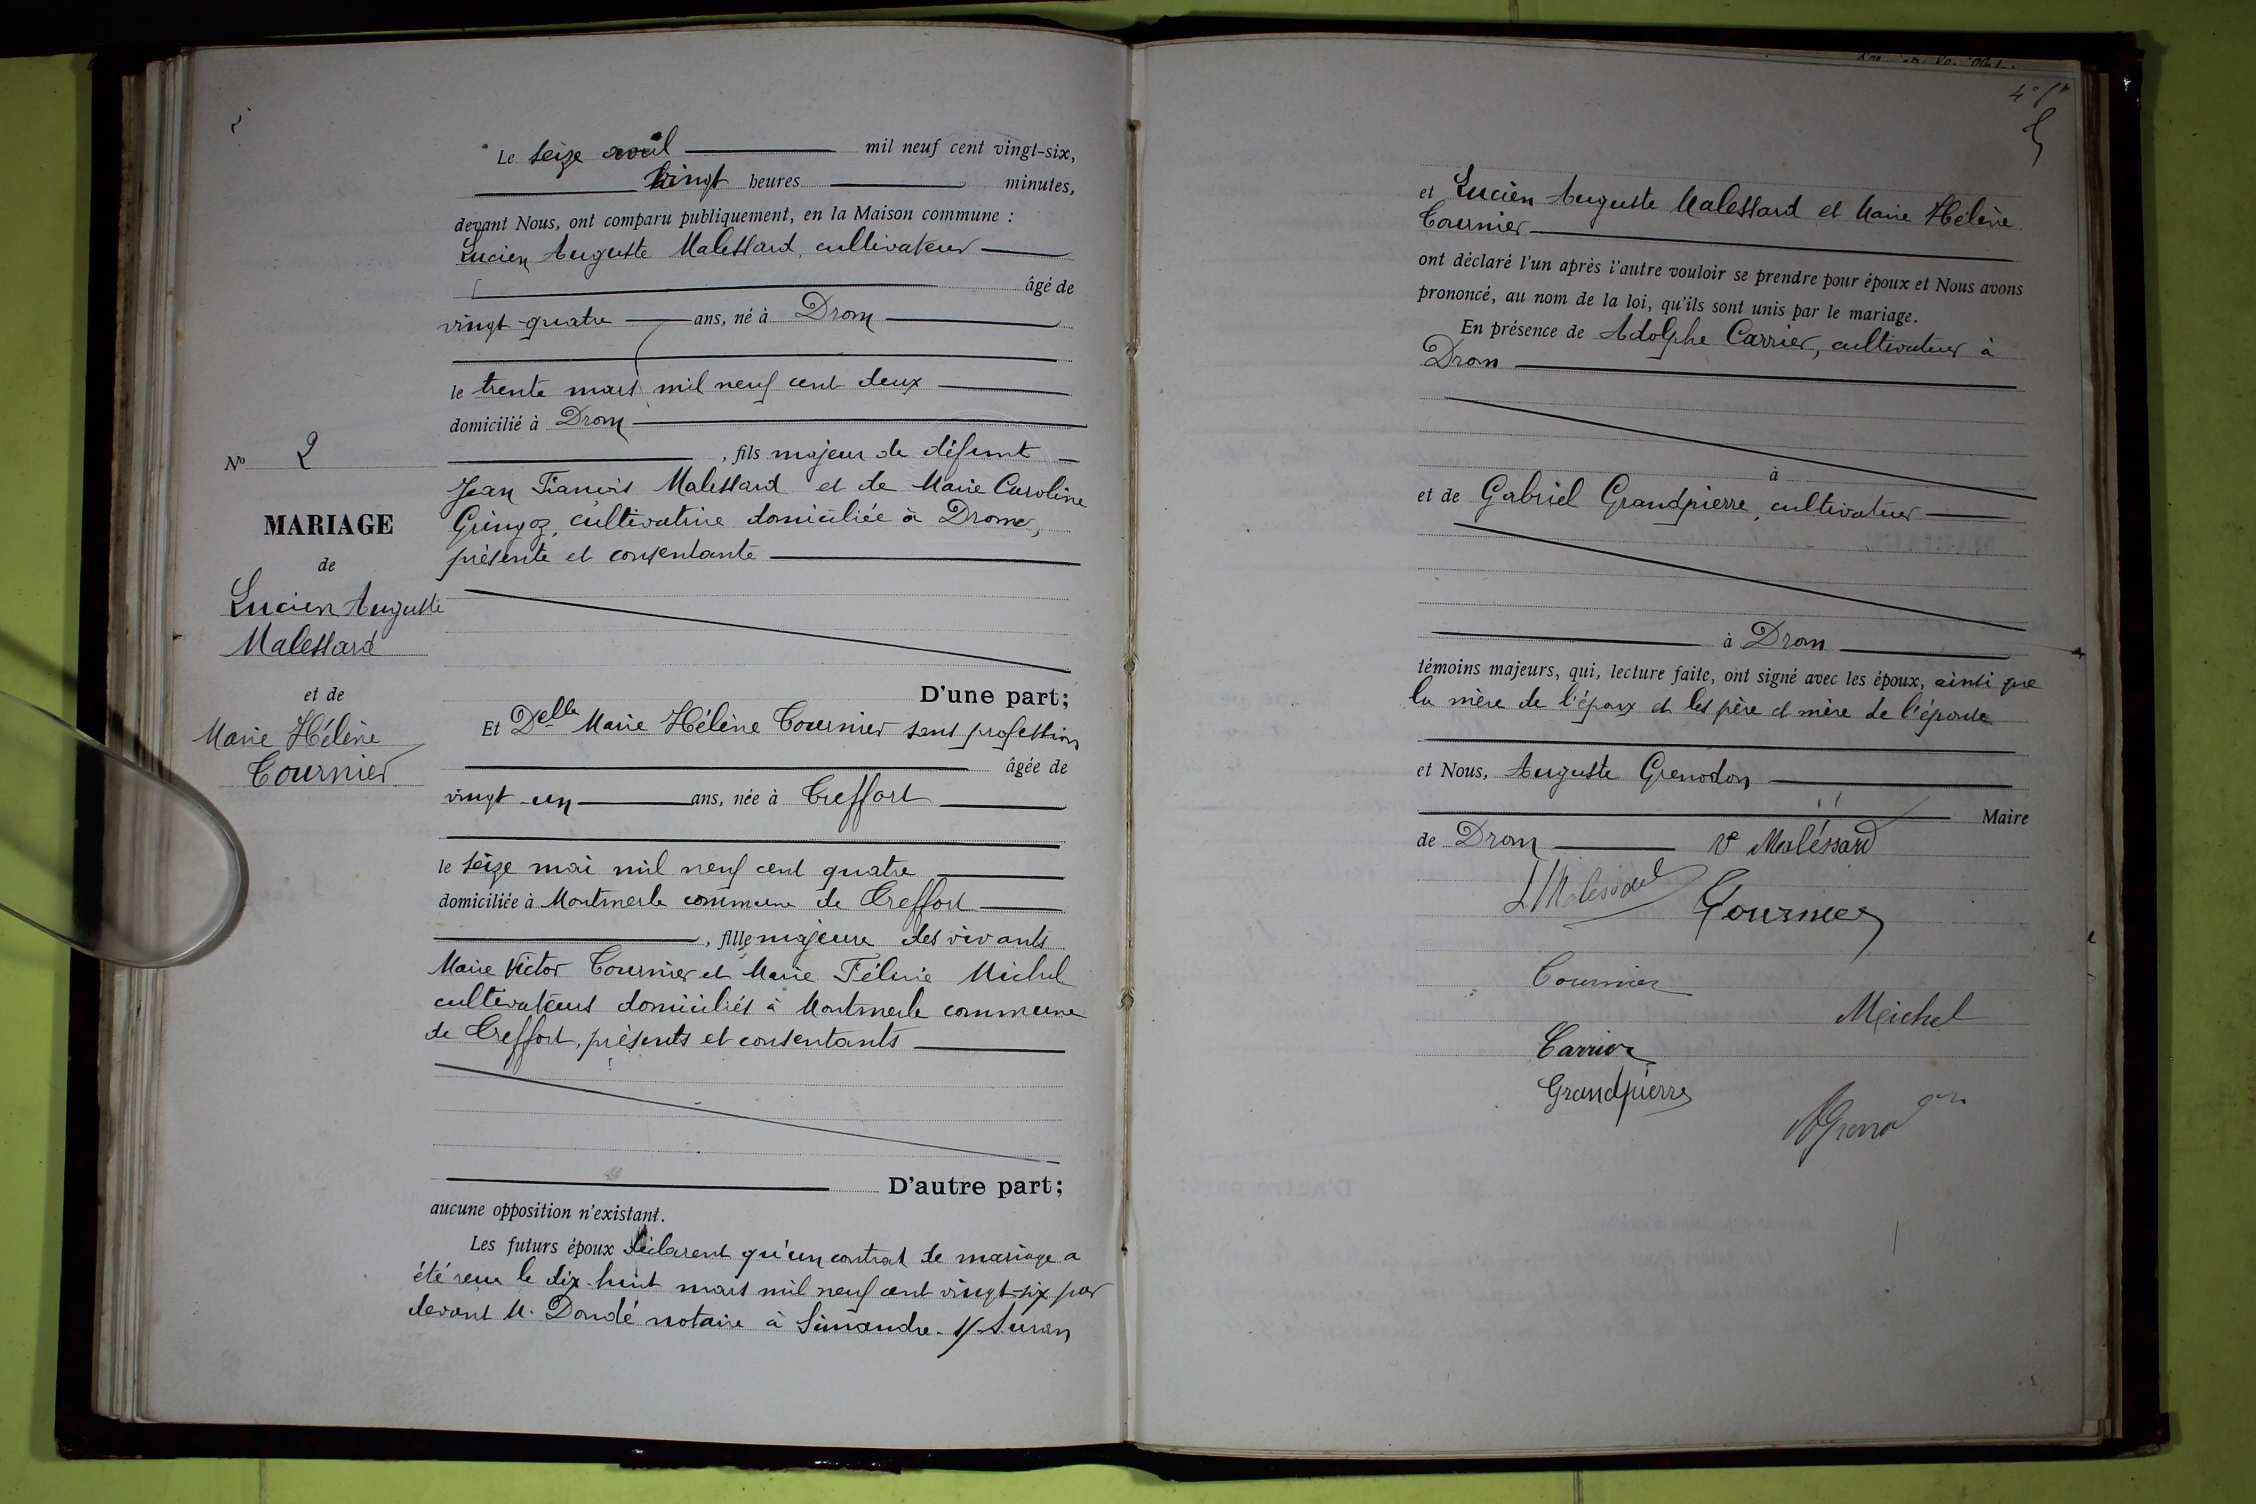 Le seize avril mil neuf cent vingt-six,
vingt heures minutes,
devant Nous, ont comparu publiquement, en la Maison commune :
Lucien Auguste Malessard, cultivateur
âgé de
vingt-quatre ans, né à Drom
le trente mars mil neuf cent deux
domicilié à Drom
, fils majeur de défunt
Jean François Malessard et de Marie Caroline
Gringoz, cultivatrice domiciliée à Drom,
présente et consentante
D'une part;
Et Delle Marie Hélène Tournier sans profession
âgée de
vingt-un ans, née à Treffort
le seize mai mil neuf cent quatre
domiciliée à Montmerle commune de Treffort
, fille majeure des vivants
Marie Victor Tournier et Marie Félicie Michel
cultivateurs domiciliés à Montmerle commune
de Treffort, présents et consentants
D'autre part;
aucune opposition n'existant.
Les futurs époux déclarent qu'un contrat de mariage a
été reçu le dix-huit mars mil neuf cent vingt-six par
devant M. Dondé notaire à Simandre-s/-Suran
No 2
MARIAGE
de
Lucien Auguste
Malessard
et de
Marie Hélène
Tournier
et Lucien Auguste Malessard et Marie Hélène
Tournier
ont déclaré l'un après l'autre vouloir se prendre pour époux et Nous avons
prononcé, au nom de la loi, qu'ils sont unis par le mariage.
En présence de Adolphe Carrier, cultivateur à
Drom
à
et de Gabriel Grandpierre, cultivateur
à Drom
témoins majeurs, qui, lecture faite, ont signé avec les époux, ainsi que
la mère de l'époux et les père et mère de l'épouse
et Nous, Auguste Grenodon
Maire
de Drom
Ve Maléssard
L Malessard
Tournier
Tournier
Michel
Carrier
Grandpierre